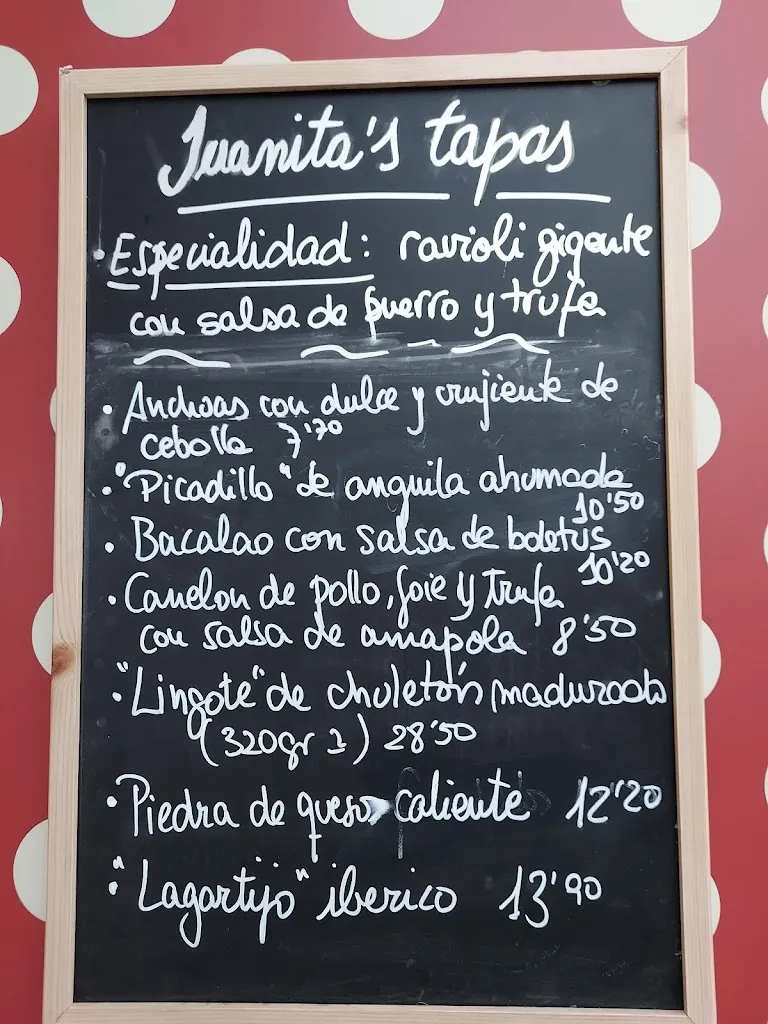 Juanita's tapas
• Especialidad: ravioli gigante
con salsa de puerro y trufa
• Anchoas con dulce y crujiente de
cebolla 7'70
• "Picadillo" de anguila ahumada
10'50
• Bacalao con salsa de boletus
10'20
• Canelon de pollo, foie y trufa
con salsa de amapola 8'50
• "Lingote" de chuletón madurado
(320gr) 28'50
• Piedra de queso caliente 12'20
• "Lagartijo" iberico 13'90